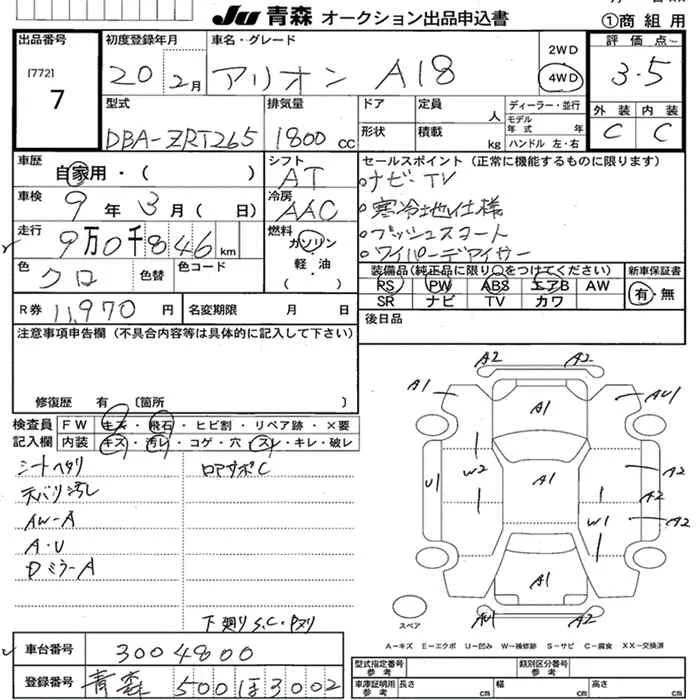 JU 青森 オークション出品申込書
①商 組 用
出品番号
[772]
7
初度登録年月
20 2月
車名・グレード
アリオン A18
2WD
4WD
評価点
3.5
型式
DBA-ZRT265
排気量
1800 cc
ドア
形状
定員 人
積載 kg
ディーラー・並行
モデル年式 年
ハンドル 左・右
外装 内装
C C
車歴
自家用・( )
シフト
AT
セールスポイント (正常に機能するものに限ります)
ナビ・TV
寒冷地仕様
プッシュスタート
ワイパーデアイサー
車検
9年 3月 ( 日)
冷房
AAC
走行
9万0千846 km
燃料
ガソリン
軽・油
( )
色
クロ
色替
色コード
装備品(純正品に限り○をつけてください)
RS PW ABS エアB AW
SR ナビ TV カワ
新車保証書
有・無
R券 11,970 円
名変期限 月 日
後日品
注意事項申告欄 (不具合内容等は具体的に記入して下さい)
修復歴 有 〔箇所 〕
検査員記入欄
FW キズ・飛石・ヒビ割・リペア跡・×要
内装 キズ・汚レ・コゲ・穴・スレ・キレ・破レ
シートヘタリ
天バリ汚レ
AW-A
A・U
Dミラー A
ロアサポC
下廻りS.C・Pヌリ
A2 A2
A1 A1 AU1
U1 W2 A1 A2
A2
W1 A2
A1
AU1 A2
スペア
A-キズ E-エクボ U-凹み W-補修跡 S-サビ C-腐食 XX-交換済
車台番号
3004800
登録番号
青森 500 ほ 3002
型式指定番号 参考
類別区分番号 参考
車庫証明用 参考
長さ cm
幅 cm
高さ cm